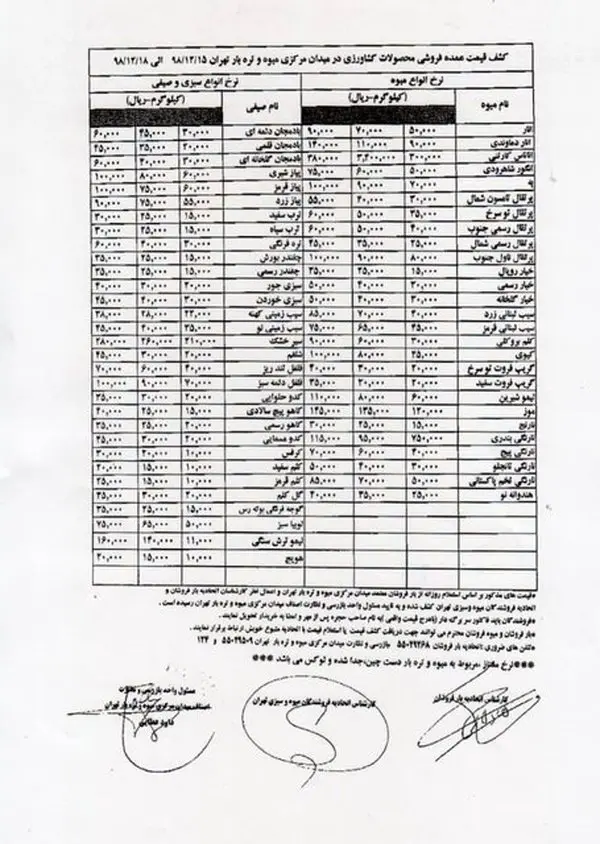 کشف قیمت عمده فروشی محصولات کشاورزی در میدان مرکزی میوه و تره بار تهران ۹۸/۱۲/۱۵ الی ۹۸/۱۲/۱۸
نرخ انواع میوه نرخ انواع سبزی و صیفی
نام میوه (کیلوگرم-ریال) نام صیفی (کیلوگرم-ریال)
انار ۵۰,۰۰۰ ۷۰,۰۰۰ ۹۰,۰۰۰ بادمجان دلمه ای ۳۰,۰۰۰ ۴۵,۰۰۰ ۶۰,۰۰۰
انار دماوندی ۹۰,۰۰۰ ۱۱۰,۰۰۰ ۱۴۰,۰۰۰ بادمجان قلمی ۲۰,۰۰۰ ۳۵,۰۰۰ ۴۵,۰۰۰
آناناس کارتنی ۳۰۰,۰۰۰ ۳,۴۰۰,۰۰۰ ۳۸۰,۰۰۰ بادمجان گلخانه ای ۳۰,۰۰۰ ۴۰,۰۰۰ ۶۰,۰۰۰
انگور شاهرودی ۵۰,۰۰۰ ۶۰,۰۰۰ ۷۵,۰۰۰ پیاز شیری ۶۰,۰۰۰ ۸۰,۰۰۰ ۱۰۰,۰۰۰
به ۷۰,۰۰۰ ۹۰,۰۰۰ ۱۰۰,۰۰۰ پیاز قرمز ۶۰,۰۰۰ ۷۵,۰۰۰ ۱۰۰,۰۰۰
پرتقال تامسون شمال ۳۰,۰۰۰ ۴۰,۰۰۰ ۵۵,۰۰۰ پیاز زرد ۵۵,۰۰۰ ۷۵,۰۰۰ ۹۰,۰۰۰
پرتقال تو سرخ ۳۵,۰۰۰ ۵۰,۰۰۰ ۶۰,۰۰۰ ترب سفید ۱۵,۰۰۰ ۲۵,۰۰۰ ۳۰,۰۰۰
پرتقال رسمی جنوب ۴۰,۰۰۰ ۵۰,۰۰۰ ۶۰,۰۰۰ ترب سیاه ۱۵,۰۰۰ ۲۵,۰۰۰ ۳۰,۰۰۰
پرتقال رسمی شمال ۲۵,۰۰۰ ۳۵,۰۰۰ ۴۵,۰۰۰ تره فرنگی ۳۰,۰۰۰ ۴۰,۰۰۰ ۶۰,۰۰۰
پرتقال ناول جنوب ۸۰,۰۰۰ ۹۰,۰۰۰ ۱۰۰,۰۰۰ چغندر بورش ۱۵,۰۰۰ ۲۵,۰۰۰ ۳۵,۰۰۰
خیار رویال ۱۵,۰۰۰ ۲۵,۰۰۰ ۳۵,۰۰۰ چغندر رسمی ۱۵,۰۰۰ ۲۵,۰۰۰ ۳۵,۰۰۰
خیار رسمی ۳۰,۰۰۰ ۴۰,۰۰۰ ۵۰,۰۰۰ سبزی جور ۲۰,۰۰۰ ۳۰,۰۰۰ ۴۰,۰۰۰
خیار گلخانه ۳۰,۰۰۰ ۴۰,۰۰۰ ۵۰,۰۰۰ سبزی خوردن ۳۰,۰۰۰ ۴۰,۰۰۰ ۴۵,۰۰۰
سیب لبنانی زرد ۴۰,۰۰۰ ۷۰,۰۰۰ ۸۵,۰۰۰ سیب زمینی کهنه ۲۳,۰۰۰ ۲۸,۰۰۰ ۳۸,۰۰۰
سیب لبنانی قرمز ۴۵,۰۰۰ ۶۵,۰۰۰ ۷۵,۰۰۰ سیب زمینی نو ۳۵,۰۰۰ ۴۰,۰۰۰ ۴۵,۰۰۰
کلم بروکلی ۳۰,۰۰۰ ۶۰,۰۰۰ ۹۰,۰۰۰ سیر خشک ۲۱۰,۰۰۰ ۲۶۰,۰۰۰ ۲۸۰,۰۰۰
کیوی ۲۵,۰۰۰ ۸۰,۰۰۰ ۱۰۰,۰۰۰ شلغم ۲۰,۰۰۰ ۳۰,۰۰۰ ۴۵,۰۰۰
گریپ فروت تو سرخ ۲۰,۰۰۰ ۳۰,۰۰۰ ۴۰,۰۰۰ فلفل تند ریز ۴۰,۰۰۰ ۶۰,۰۰۰ ۷۰,۰۰۰
گریپ فروت سفید ۲۰,۰۰۰ ۲۰,۰۰۰ ۳۵,۰۰۰ فلفل دلمه سبز ۷۰,۰۰۰ ۹۰,۰۰۰ ۱۰۰,۰۰۰
لیمو شیرین ۶۰,۰۰۰ ۸۰,۰۰۰ ۱۱۰,۰۰۰ کدو حلوایی ۲۰,۰۰۰ ۳۰,۰۰۰ ۳۵,۰۰۰
موز ۱۲۰,۰۰۰ ۱۳۵,۰۰۰ ۱۴۵,۰۰۰ کاهو پیچ سالادی ۱۵,۰۰۰ ۲۵,۰۰۰ ۴۰,۰۰۰
نارنج ۱۵,۰۰۰ ۲۵,۰۰۰ ۳۰,۰۰۰ کاهو رسمی ۲۰,۰۰۰ ۴۰,۰۰۰ ۴۵,۰۰۰
نارنگی بندری ۷۵۰,۰۰۰ ۹۵,۰۰۰ ۱۱۵,۰۰۰ کدو مسمایی ۲۰,۰۰۰ ۳۰,۰۰۰ ۴۵,۰۰۰
نارنگی پیج ۴۰,۰۰۰ ۶۰,۰۰۰ ۷۰,۰۰۰ کرفس ۱۰,۰۰۰ ۲۰,۰۰۰ ۳۰,۰۰۰
نارنگی تانجلو ۳۰,۰۰۰ ۴۰,۰۰۰ ۵۰,۰۰۰ کلم سفید ۱۰,۰۰۰ ۱۵,۰۰۰ ۲۰,۰۰۰
نارنگی تخم پاکستانی ۵۰,۰۰۰ ۷۰,۰۰۰ ۸۵,۰۰۰ کلم قرمز ۱۰,۰۰۰ ۱۵,۰۰۰ ۲۵,۰۰۰
هندوانه نو ۲۵,۰۰۰ ۳۵,۰۰۰ ۴۰,۰۰۰ گل کلم ۲۰,۰۰۰ ۳۰,۰۰۰ ۳۵,۰۰۰
گوجه فرنگی بوته رس ۱۵,۰۰۰ ۲۵,۰۰۰ ۳۵,۰۰۰
لوبیا سبز ۵۰,۰۰۰ ۶۵,۰۰۰ ۷۵,۰۰۰
لیمو ترش سنگی ۱۱,۰۰۰ ۱۴۰,۰۰۰ ۱۶۰,۰۰۰
هویج ۱۰,۰۰۰ ۱۵,۰۰۰ ۲۰,۰۰۰
*قیمت های مذکور بر اساس استعلام روزانه از بار فروشان معتمد میدان مرکزی میوه و تره بار تهران و اعمال نظر کارشناسان اتحادیه بار فروشان و
اتحادیه فروشندگان میوه وسبزی تهران کشف شده و به تایید مسئول واحد بازرسی و نظارت اصناف میدان مرکزی میوه و تره بار تهران رسیده است .
*فروشندگان باید فاکتور سربرگه دار (بادرج قیمت واقعی )به نام صاحب حجره پس از مهر و امضا به خریدار تحویل نمایند .
*بار فروشان و میوه فروشان محترم می توانند جهت دریافت کشف قیمت یا استعلام قیمت با اتحادیه متبوع خویش ارتباط برقرار نمایند .
*تلفن های ضروری :اتحادیه بار فروشان ۵۵۰۴۹۲۶۸ بازرسی و نظارت میدان مرکزی میوه و تره بار تهران ۵۵۰۴۹۵۰۹ و ۱۲۴
***نرخ ممتاز ،مربوط به میوه و تره بار دست چین،جدا شده و لوکس می باشد ***
کارشناس اتحادیه بار فروشان
کارشناس اتحادیه فروشندگان میوه و سبزی تهران
مسئول واحد بازرسی و نظارت
اصناف میدان مرکزی میوه و تره بار تهران